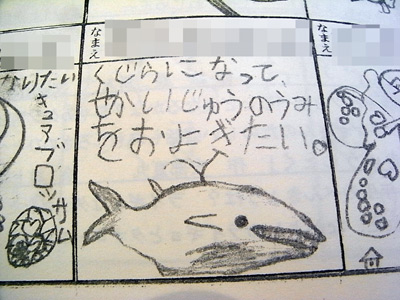 なまえ
くじらになって、
せかいじゅうのうみ
をおよぎたい。
なまえ
なりたい
キュアブロッサム